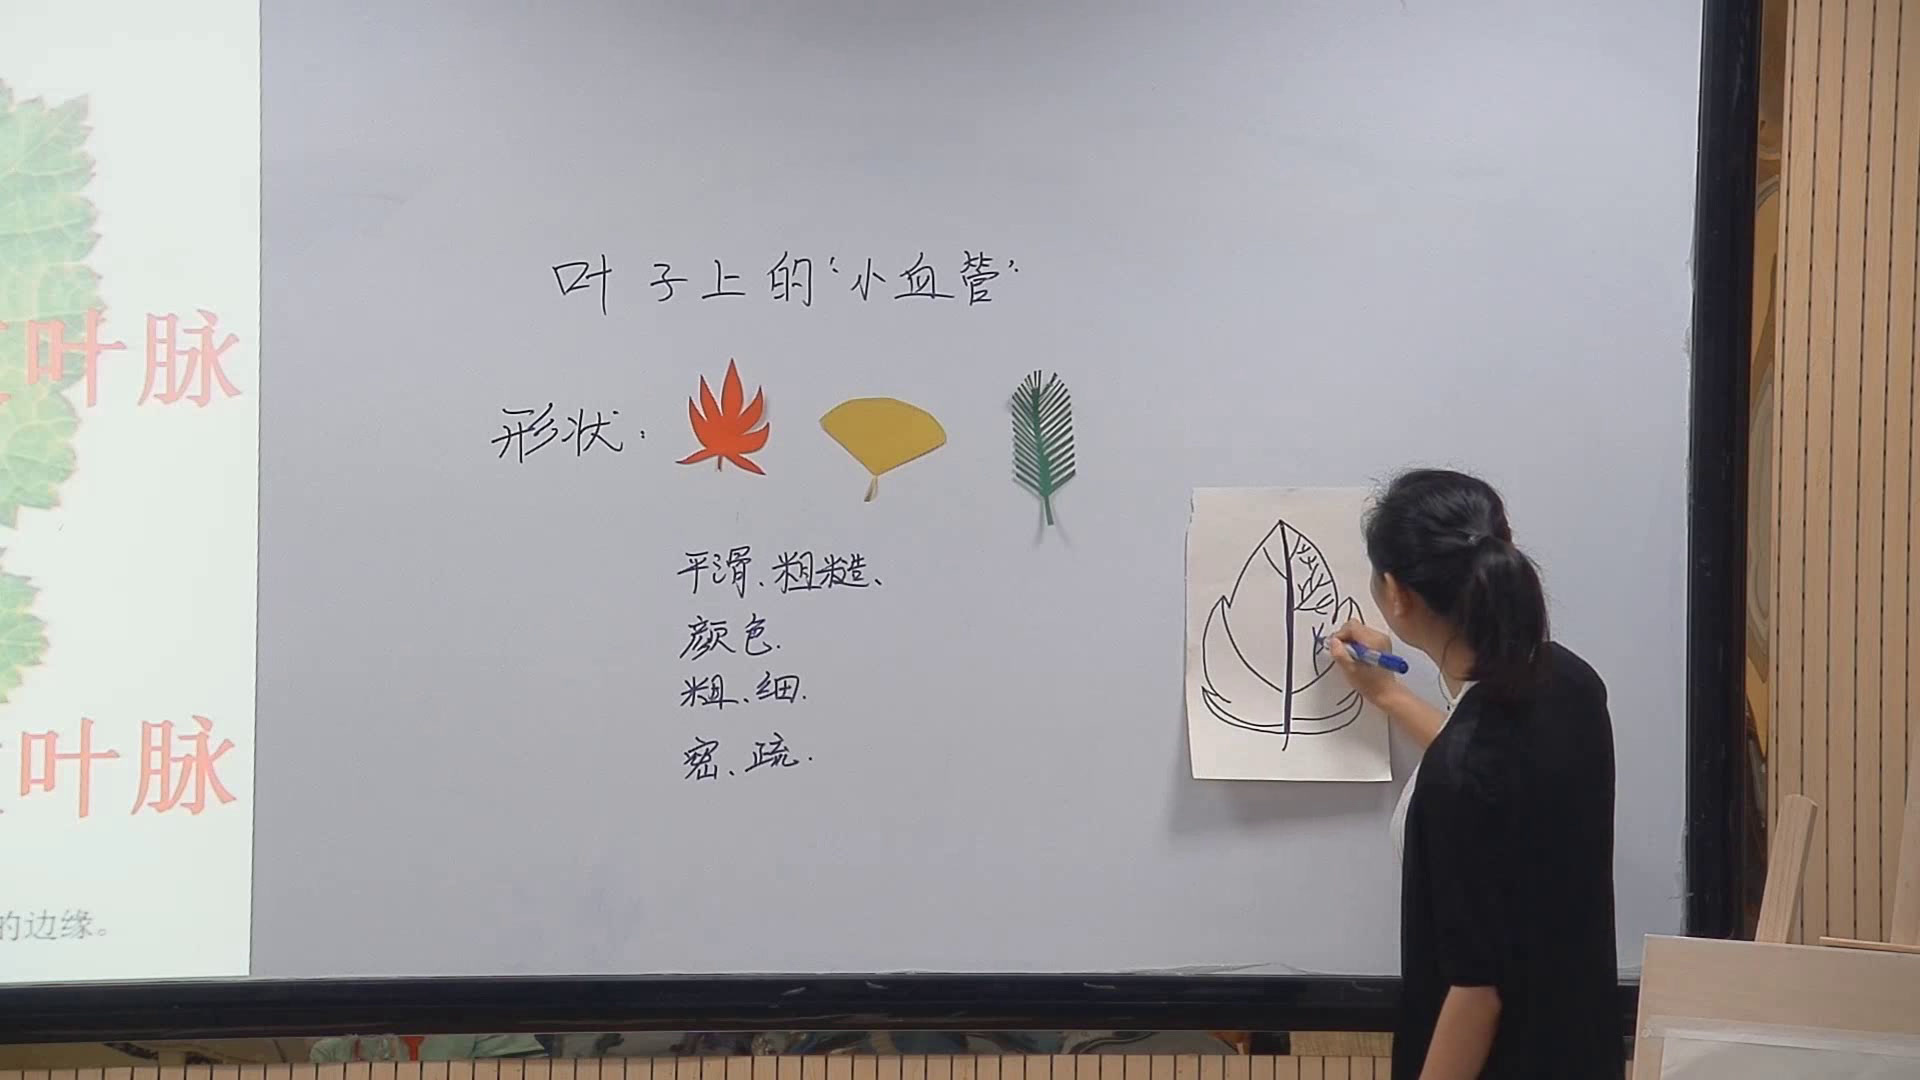 叶脉
叶脉
的边缘。
叶子上的‘小血管’
形状:
平滑、粗糙、
颜色.
粗、细.
密、疏.